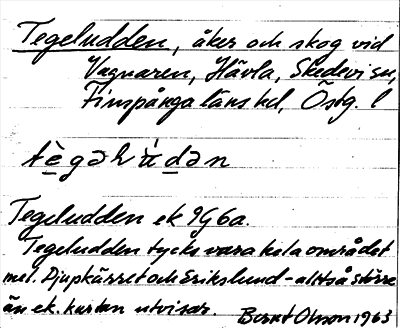 Tegeludden, åker och skog vid
Vagnaren, Hävla, Skedevi sn,
Finspånga läns hd, Östg. l
Tegeludden ek 9G6a.
Tegeludden tycks vara hela området
mel. Djupkärret och Erikslund - alltså större
än ek. kartan utvisar. Bernt Olsson 1963